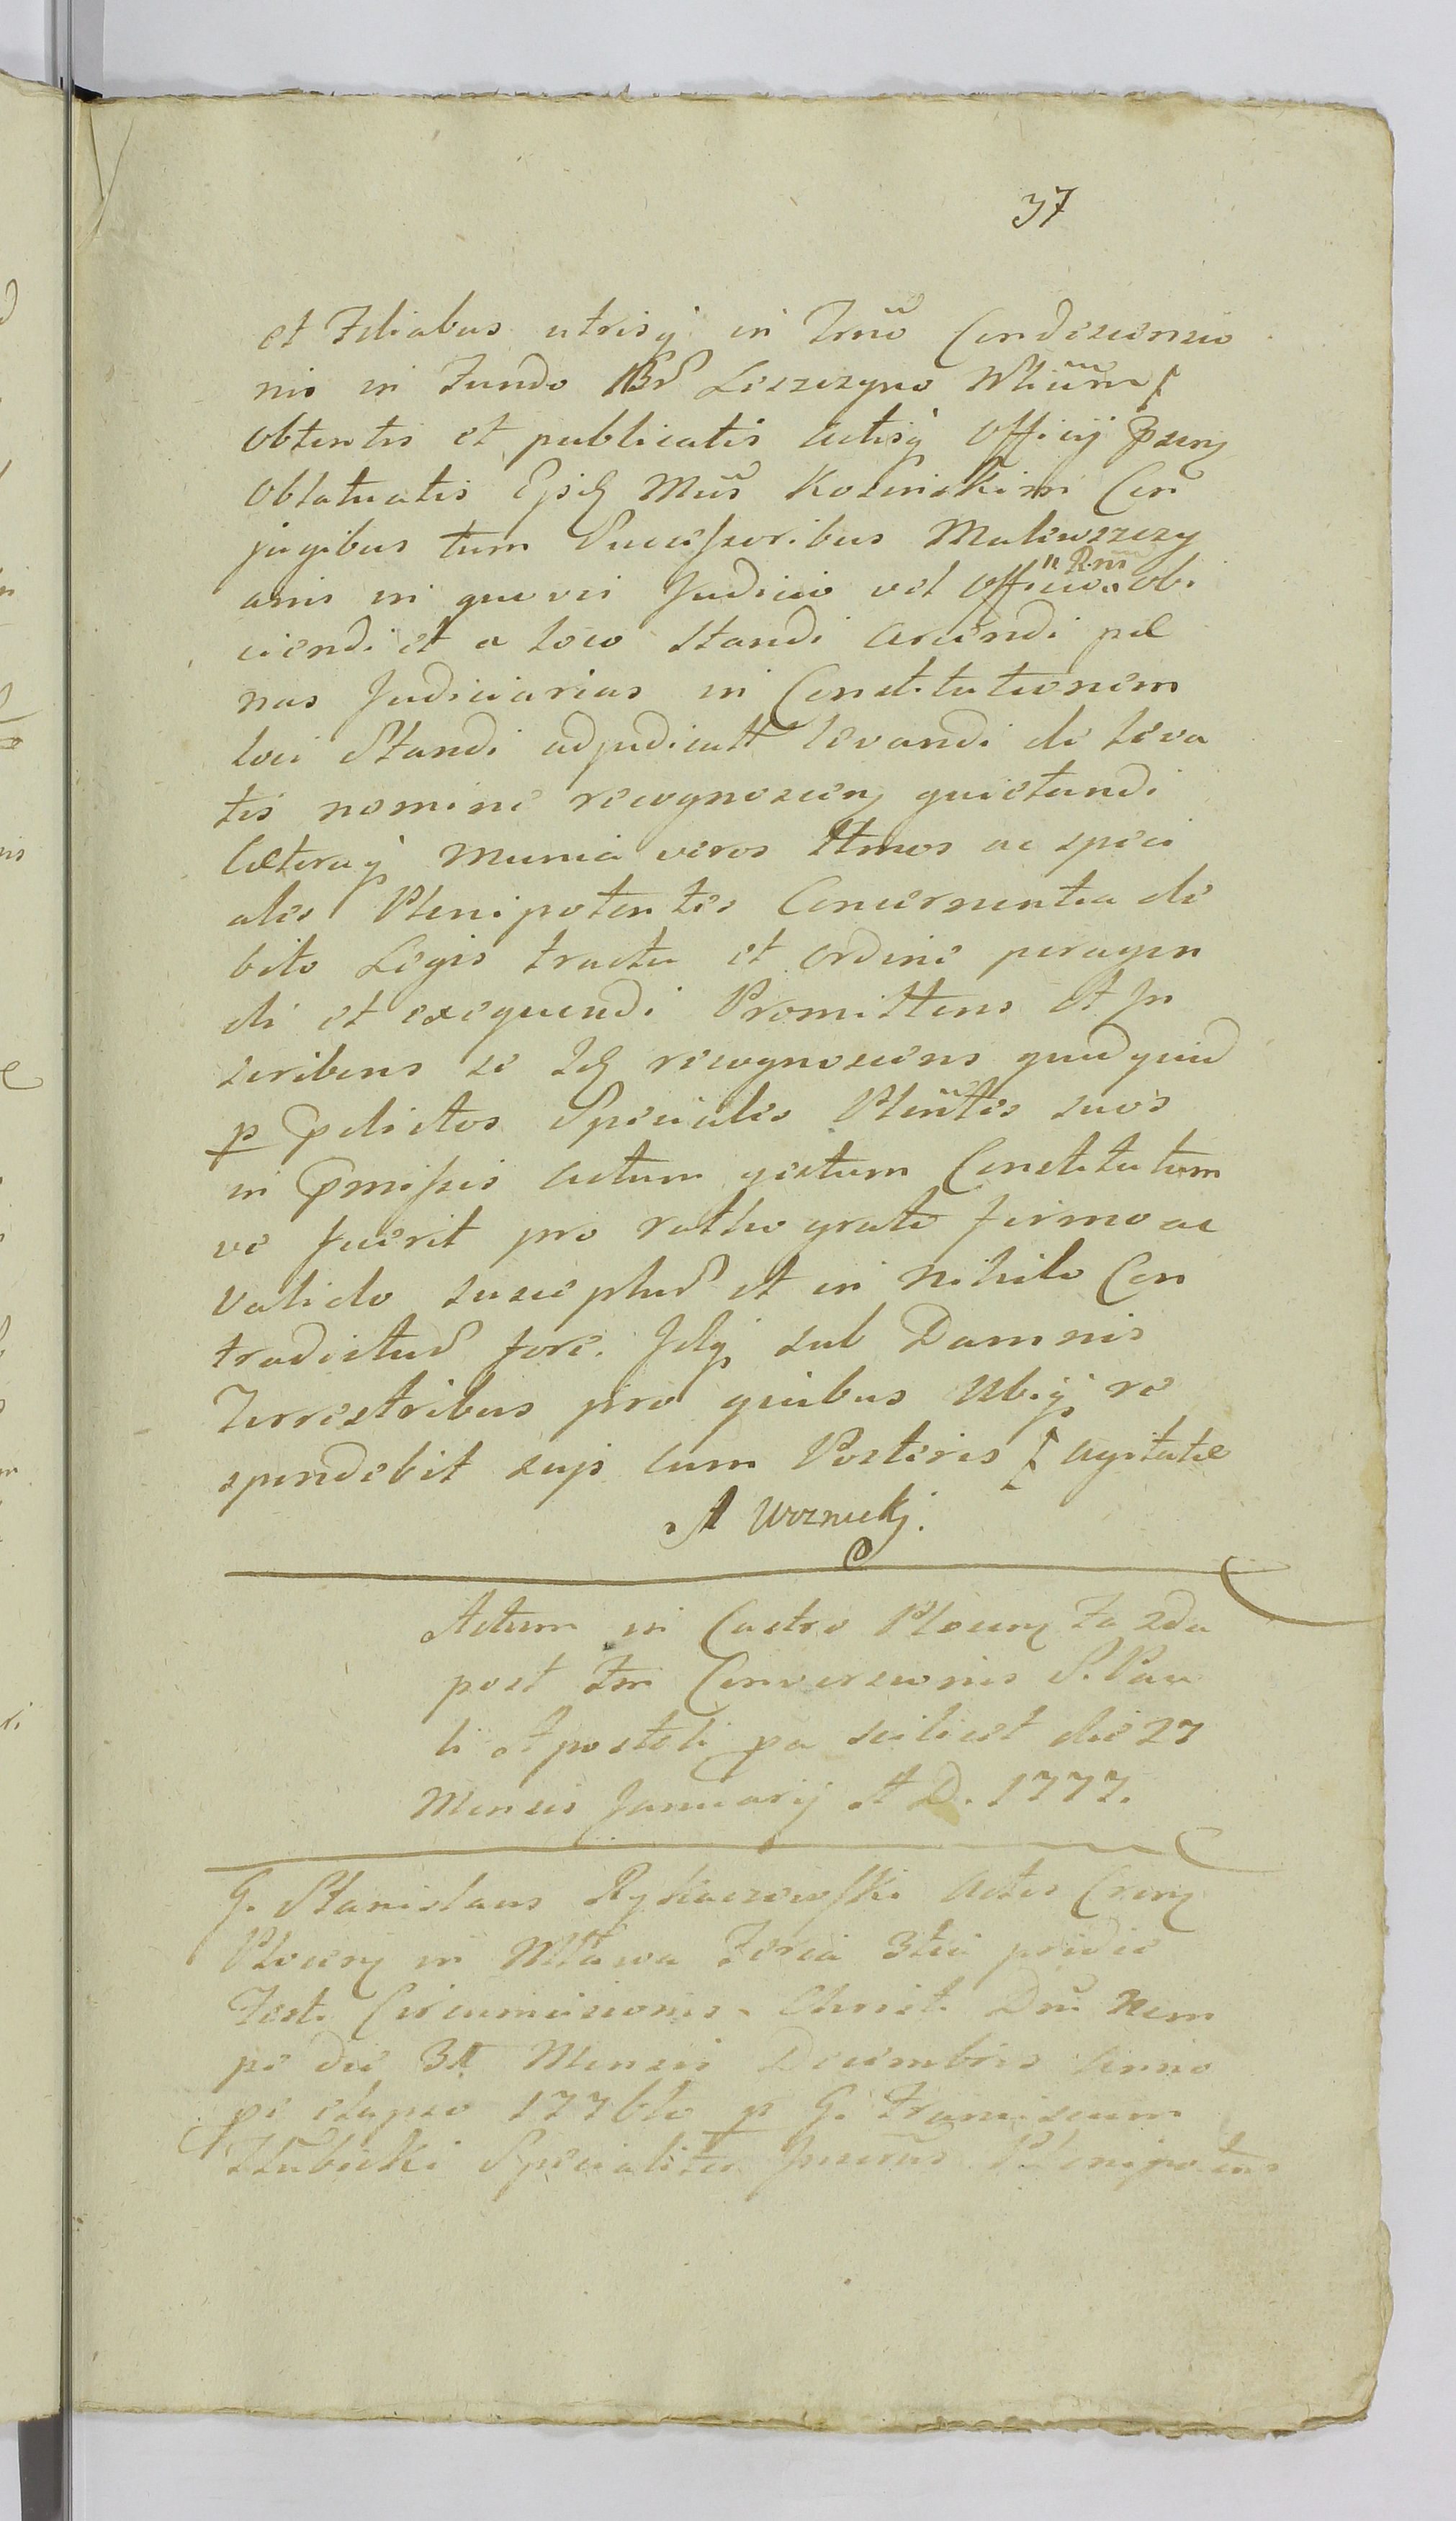 37
et Filiabus utrisq in Trno Condescensio
nis in Fundo Bd Leszczyno
obtentis et publicatis Actisq Officij pzen
oblatuatis Mus Kosinskim Con
jugibus tum Successoribus Malewszczy
anis in quovis Judicio vel Officio obi
ciendi et a loco standi arcendi pæ
nas Judiciarias in Constitutionem
loci Standi adjudicatt levandi de leva
tis nomine recognoscen quietandi
Cæteraq Munia veros ttmos ac speci
ales Plenipotentes Concernentia de
bito Legis tractu et ordine peragen
di et exequendi Promittens et In
scribens se Idq recognoscens quidquid
p pdictos Speciales Plentes suos
in pmissis Actum gestum Constitutum
ve fuerit pro ratho grato firmo ac
valido susceptud et in nihilo Con
tradictud fore. Idq sub Damnis
Terrestribus pro quibus Ubiq re
spondebit seqs cum Posteris Agitatæ
A Woznicki.
Actum in Castro Plocen Fa 2da
post Fm Conversionis S. Pau
li Apostoli pa scilicet die 27
Mensis Januarij A D. 1777.
G. Stanislaus Rykaczewski Actis Cren
Plocen in Mława Feria 3tia pridie
Festi Circumcisionis Christi Dni Nem
pe die 31 Mensis Decembris Anno
pe elapso 1776to p G. Franciscum
Specialiter Plenipotens